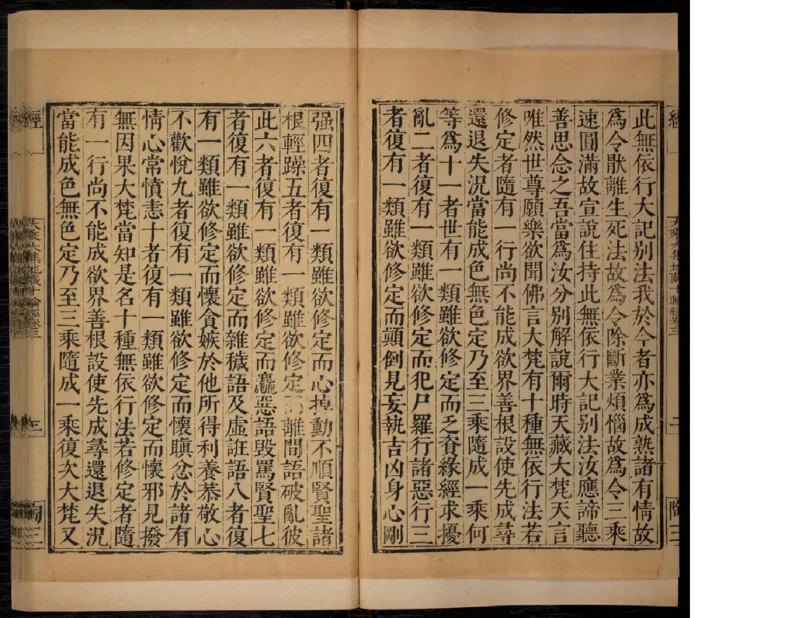 此無依行大記別法我於今者亦為成熟諸有情故
為令猒離生死法故為令除斷業煩惱故為令三乘
速圓滿故宣說住持此無依行大記別法汝應諦聽
善思念之吾當為汝分別解說爾時天藏大梵天言
唯然世尊願樂欲聞佛言大梵有十種無依行法若
修定者隨有一行尚不能成欲界善根設使先成尋
還退失況當能成色無色定乃至三乘隨成一乘何
等為十一者世有一類雖欲修定而乏資緣經求擾
亂二者復有一類雖欲修定而犯尸羅行諸惡行三
者復有一類雖欲修定而顛倒見妄執吉凶身心剛
强四者復有一類雖欲修定而心掉動不順賢聖諸
根輕躁五者復有一類雖欲修定而離間語破亂彼
此六者復有一類雖欲修定而麁惡語毀罵賢聖七
者復有一類雖欲修定而雜穢語及虛誑語八者復
有一類雖欲修定而懷貪嫉於他所得利養恭敬心
不歡悅九者復有一類雖欲修定而懷瞋忿於諸有
情心常憤恚十者復有一類雖欲修定而懷邪見撥
無因果大梵當知是名十種無依行法若修定者隨
有一行尚不能成欲界善根設使先成尋還退失況
當能成色無色定乃至三乘隨成一乘復次大梵又
經
三
陶三